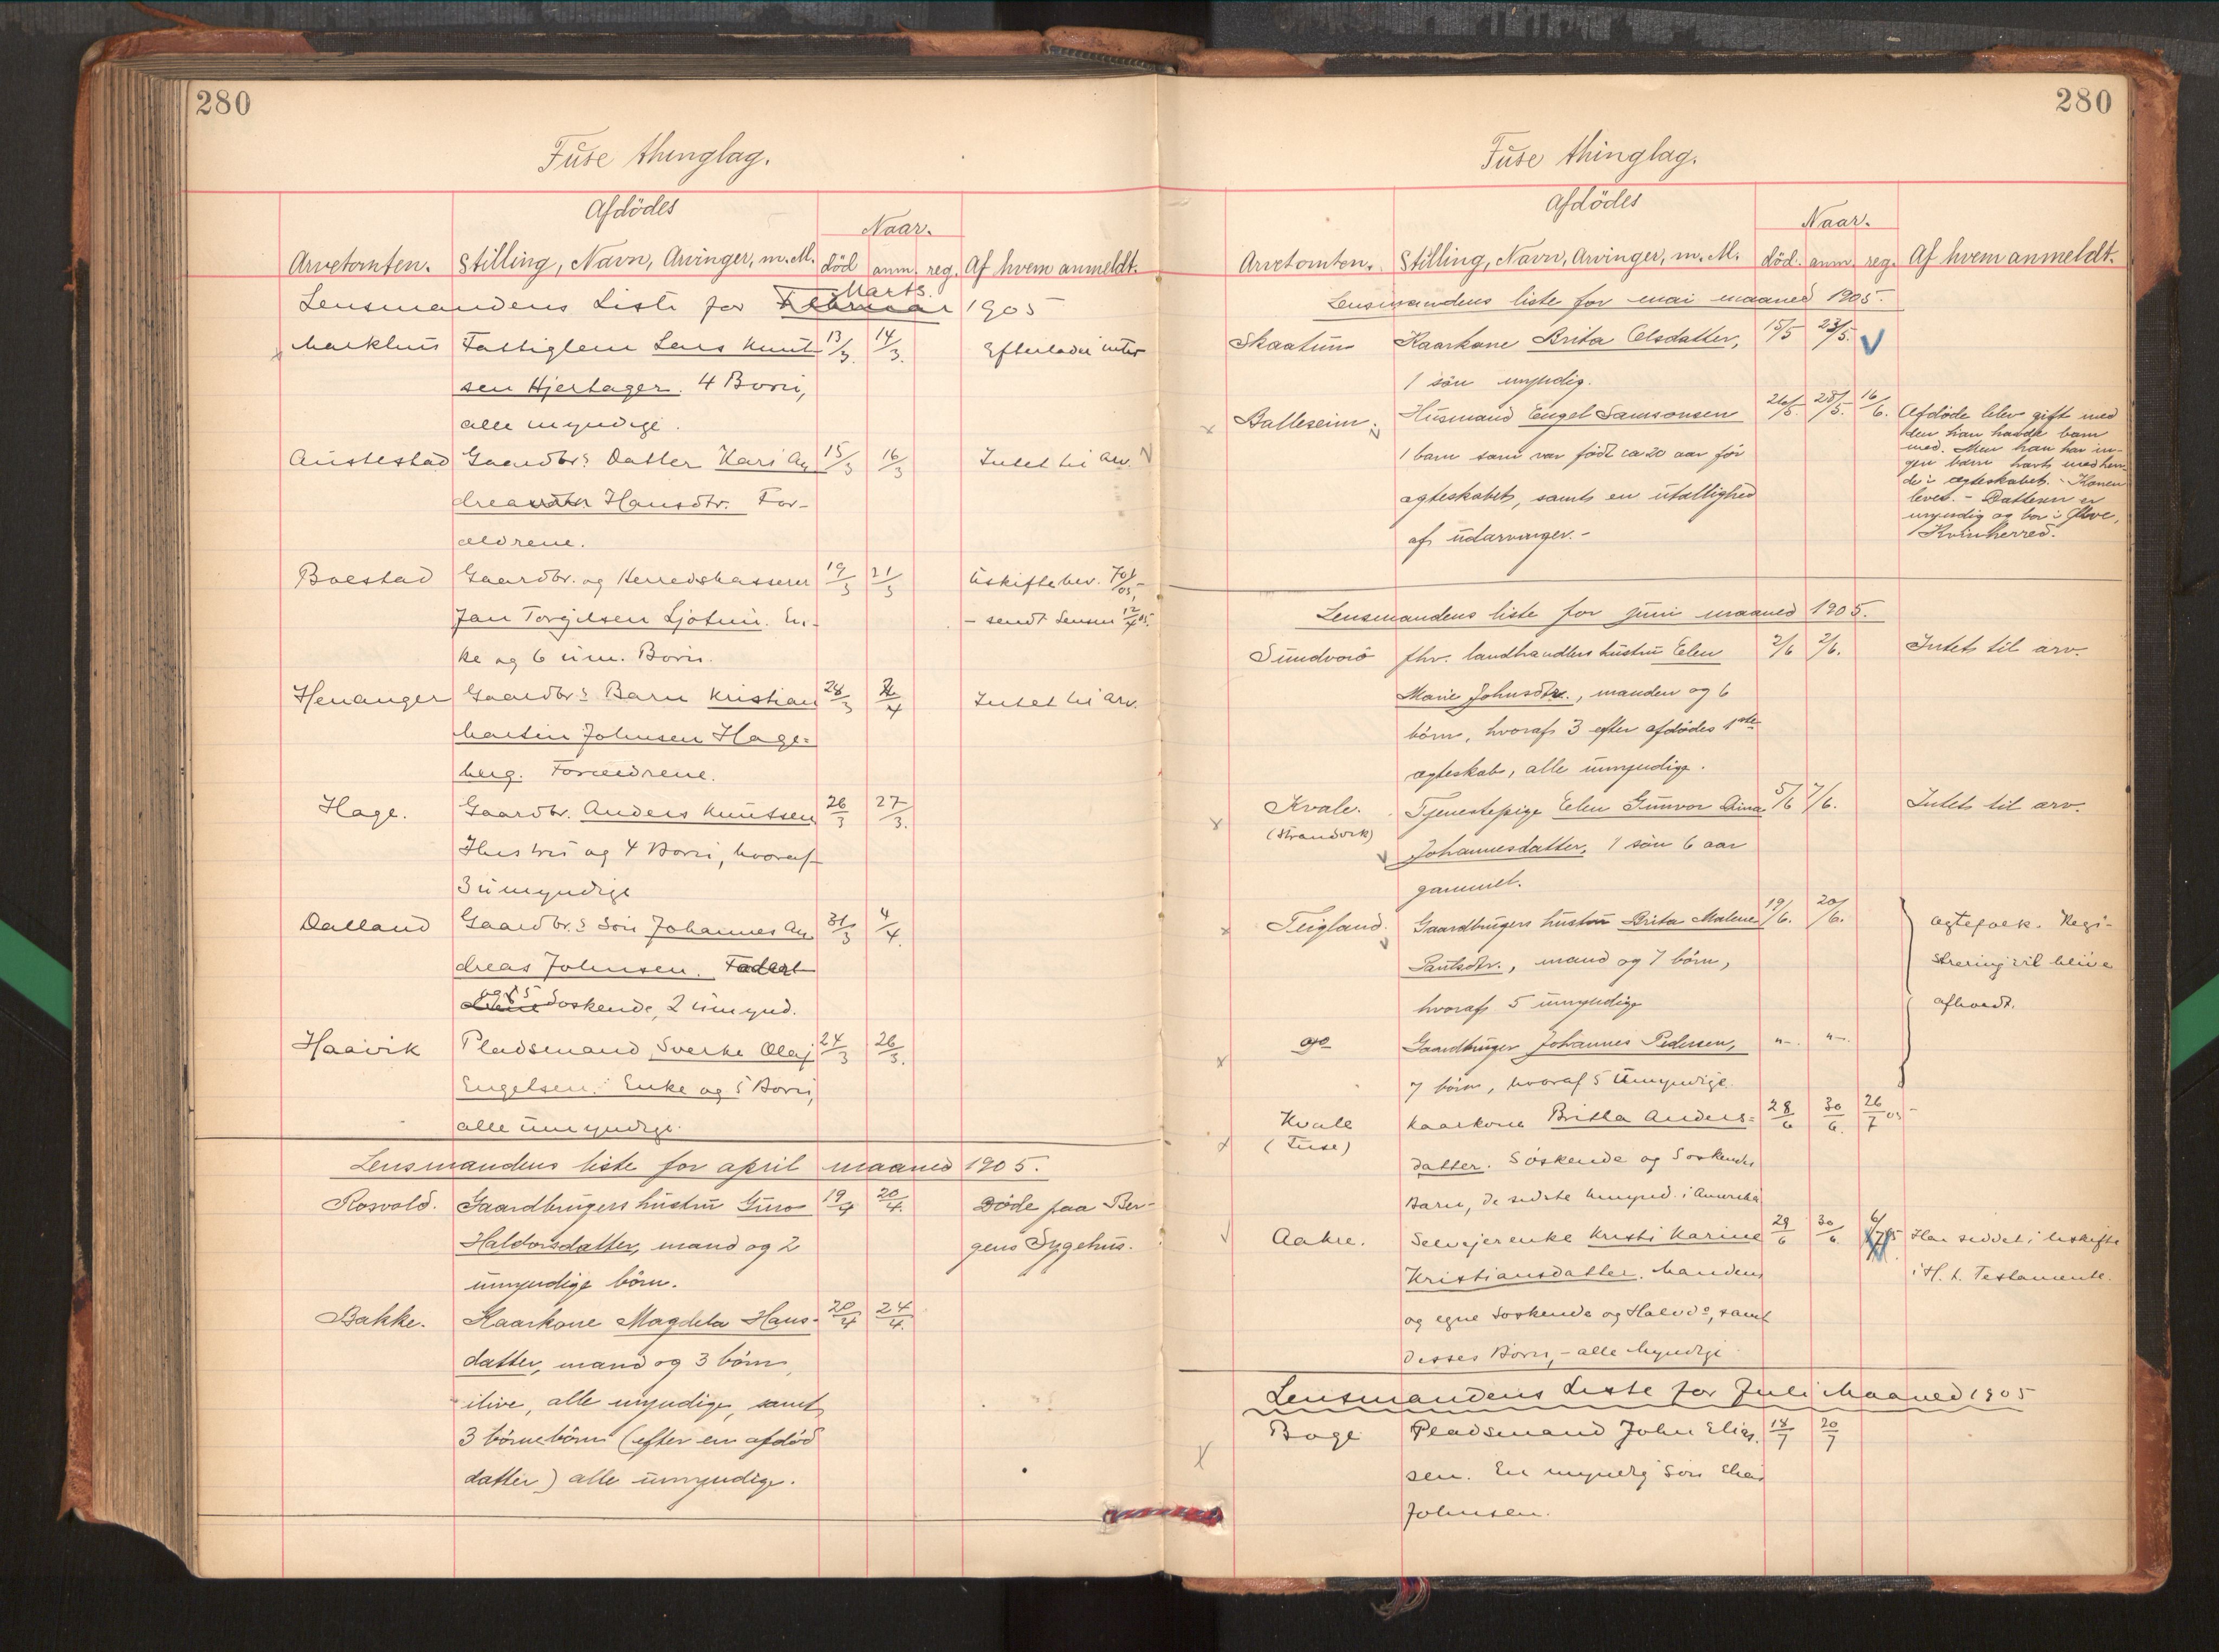 280
Fuse thinglag.
Afdödes
Naar.
Arvetomten. Stilling, Navn, Arvinger, m.M. död anm. reg. Af hvem anmeldt.
Marts.
Lensmandens Liste for Februar 1905
Markhus Fattiglem Lars Knut- 13/3. 14/3. Efterlader intet
sen Hjertager. 4 Börn,
alle myndige.
Austestad Gaardbr.s Datter Kari An 15/3 16/3 Intet til Arv.
dreasdtr Hansdtr. For-
ældrene.
Bolstad Gaardbr. og Herredskasserer 19/3 21/3 Uskiftebev. 701/05,
Jan Torgilsen Ljotun. En- - sendt Lensm 12/4 05.
ke og 6 um. Börn.
Henanger Gaardbr.s Barn Kristian 28/3 /4 Intet til Arv.
Martin Johnsen Hage-
berg. Forældrene.
Hage. Gaardbr. Anders Knutsen 26/3 27/3.
Hustru og 4 Börn, hvoraf
3 umyndige
Dalland Gaardbr.s Sön Johannes An 31/3 4/4.
dreas Johnsen. Fader
og 5 Söskende, 2 umynd.
Haavik Pladsmand Sverke Olaj 24/3 26/3.
Engelsen. Enke og 5 Börn,
alle umyndige.
Lensmandens liste for april maaned 1905.
Rosvold. Gaardbrugers hustru Guro 19/4 20/4. Döde paa Ber-
Haldorsdatter, mand og 2 gens Sygehus.
umyndige börn.
Bakke. Kaarkone Magdela Hans- 20/4 24/4.
datter, mand og 3 börn
ilive, alle myndige, samt
3 börnebörn (efter en afdöd
datter) alle umyndige.
280
Fuse thinglag.
Afdödes
Naar.
Arvetomten. Stilling, Navn, Arvinger, m.M. död. anm. reg. Af hvem anmeldt.
Lensmandens liste for mai maaned 1905.
Skaatun Kaarkone Brita Olsdatter, 15/5 23/5.
1 sön myndig.
Balleseim. Husmand Engel Samsonsen 26/5. 28/5. 16/6. Afdöde blev gift med
den han havde barn
1 barn som var födt ca 20 aar för med. Men han har in-
gen barn havt med hen-
ægteskabet, samt en utallighed de i ægteskabet. - Konen
lever. - Datteren er
af udarvinger. - myndig og bor i Ølve,
Kvinherred.
Lensmandens liste for juni maaned 1905.
Sundvor fhv. landhandlers hustru Elen 2/6 2/6. Intet til arv.
Marie Johnsdtr., manden og 6
börn, hvoraf 3 efter afdödes 1ste
ægteskab, alle umyndige.
Kvale. Tjenestepige Elen Gunvor Dina 5/6 7/6. Intet til arv.
(Strandvik) Johannesdatter, 1 sön 6 aar
gammel.
Teigland. Gaardbrugers hustru Brita Malene 19/6. 20/6. Ægtefolk. Regi-
Santsdtr., mand og 7 börn, strering vil blive
hvoraf 5 umyndige afholdt.
do Gaardbruger Johannes Pedersen, "-. "-.
7 börn, hvoraf 5 Umyndige.
Kvale Kaarkone Britha Anders- 28/6 30/6. 26/7 05
(Fuse) datter. Söskende og Söskendes
Barn, de sidste umynd. i Amerika
Aakre. Selvejerenke Kristi Karine 29/6 30/6. 6/7 05 Har siddet i Uskifte
Kristiansdatter. Mandens i H. t. Testamente.
og egne Söskende og Halvdo, samt
disses Börn, - alle Myndige
Lensmandens Liste for Juli Maaned 1905
Boge Pladsmand John Elias 18/7 20/7
sen. En myndig Sön Elias
Johnsen.